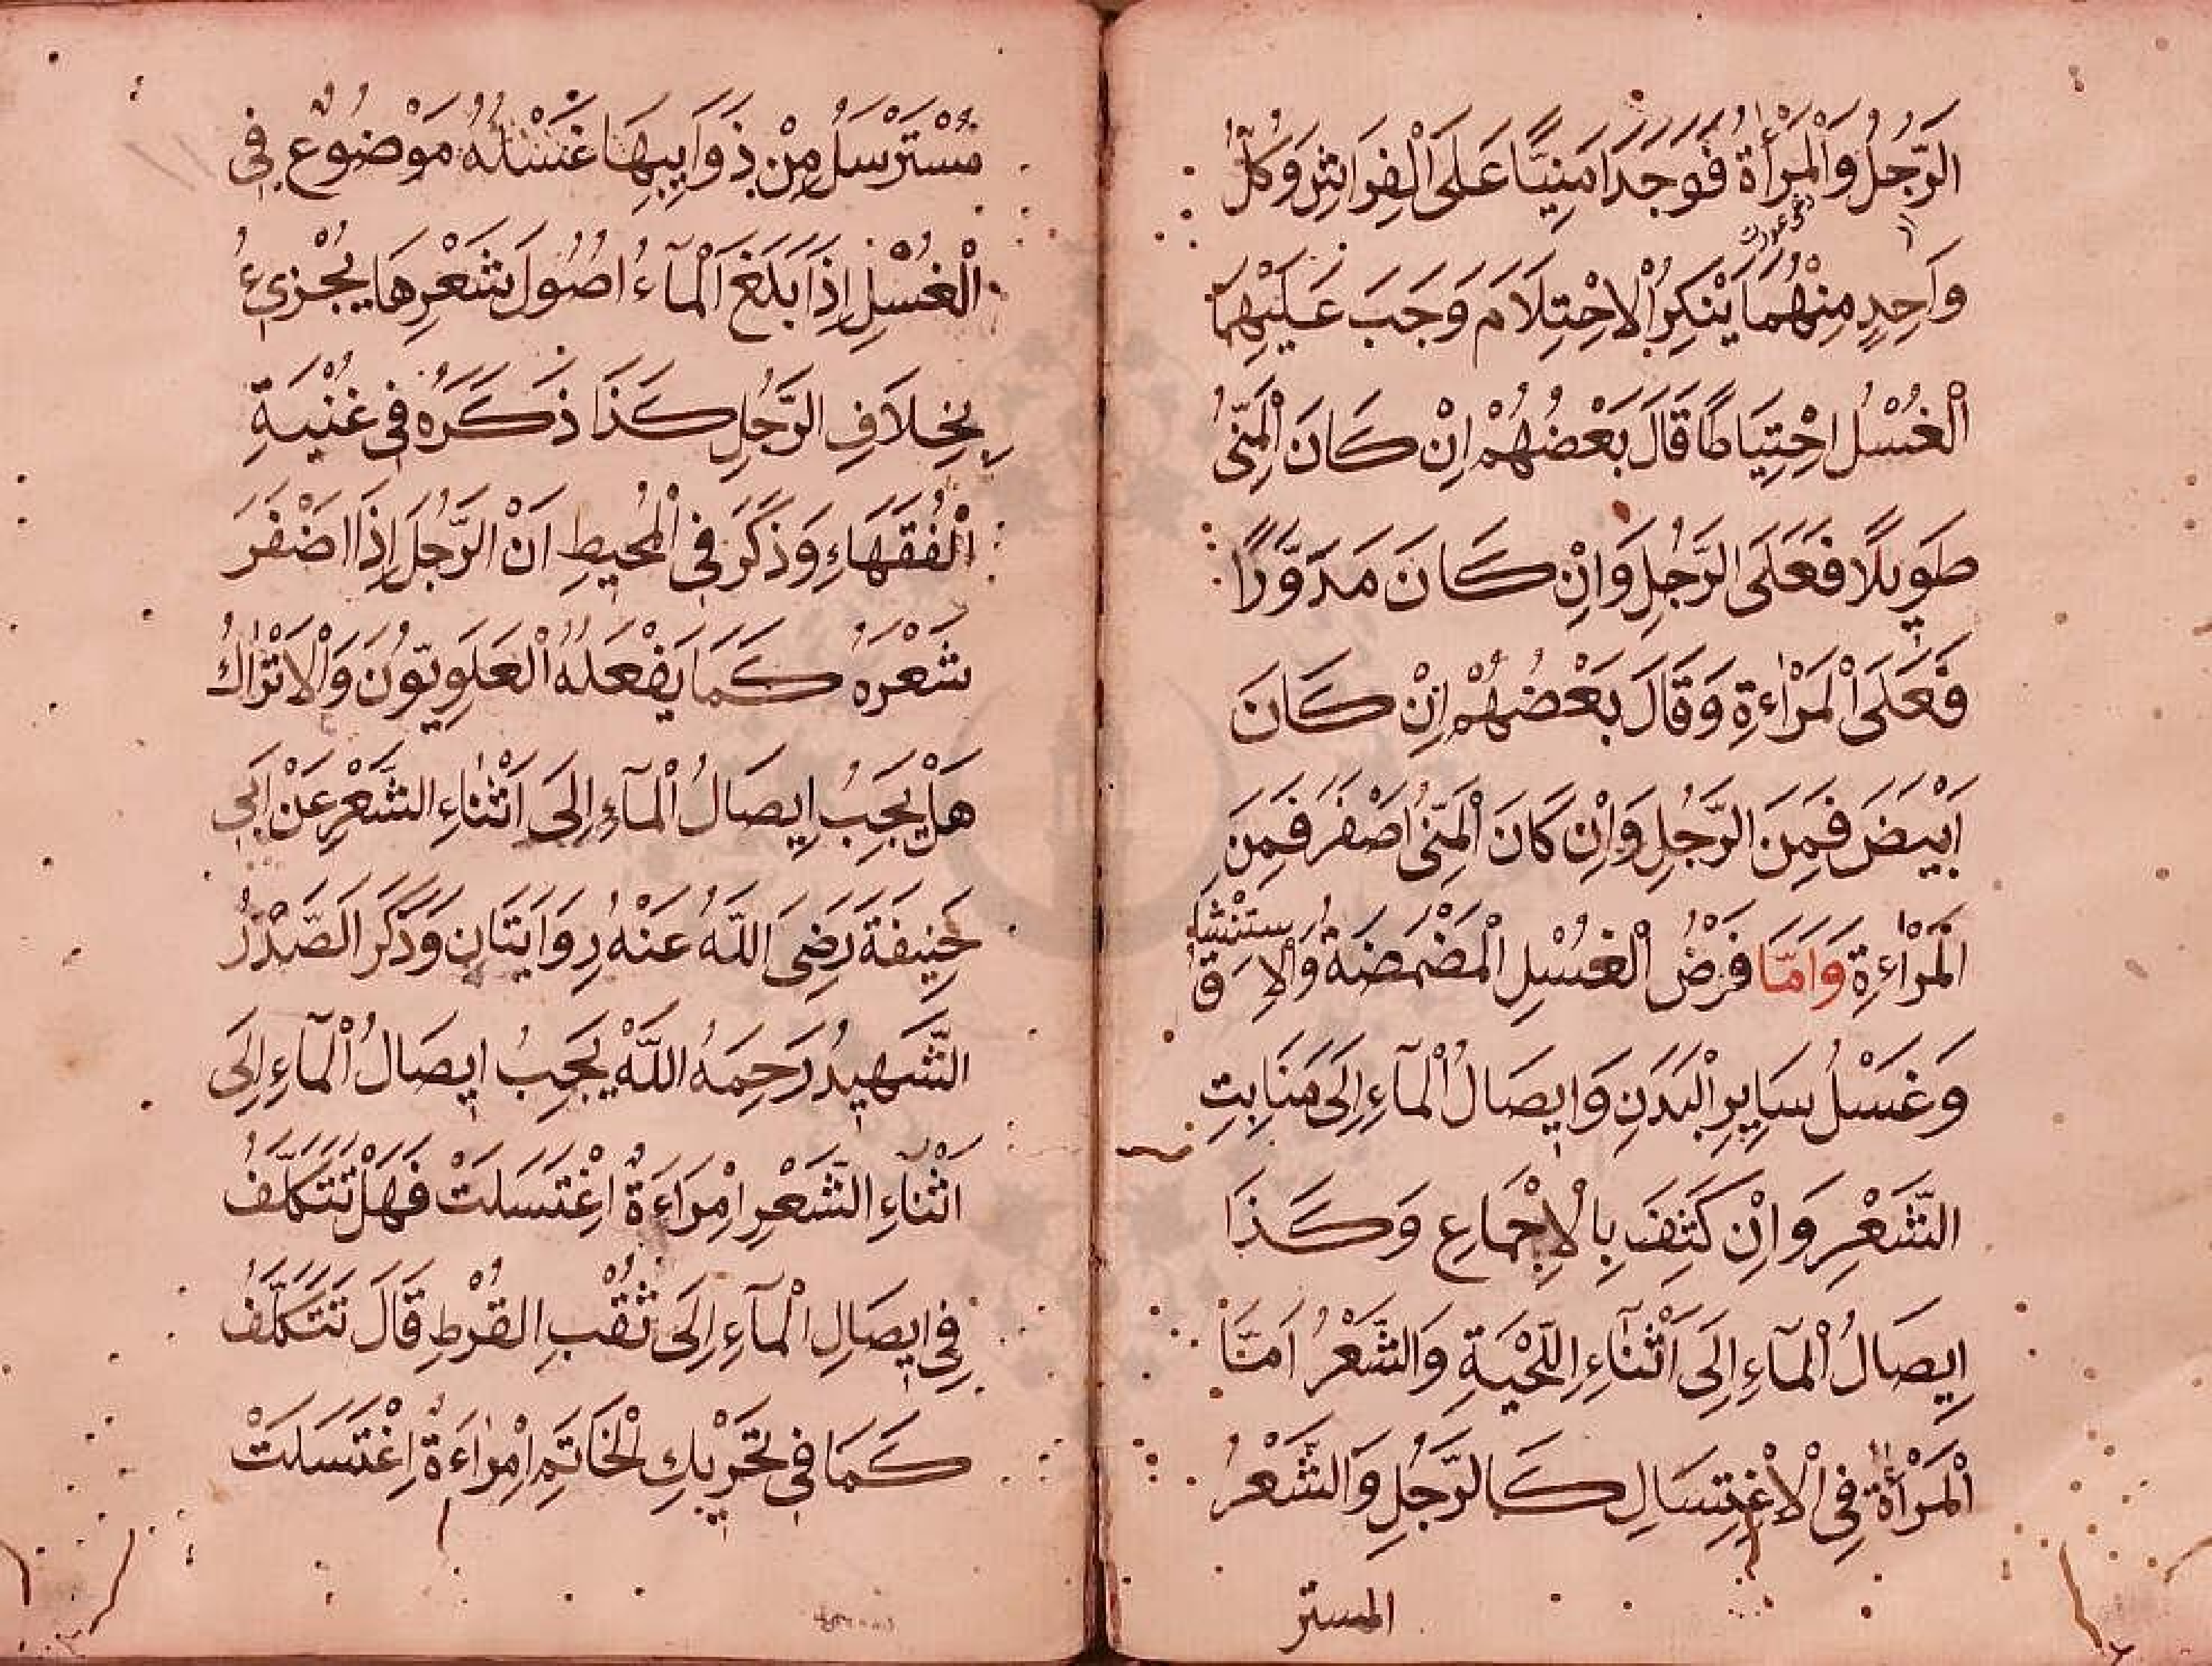 الرَّجُلُ وَالْمَرْأَةُ فَوَجَدَا مَنِيًّا عَلَى الْفِرَاشِ وَكُلُّ
وَاحِدٍ مِنْهُمَا يُنْكِرُ الْاحْتِلَامَ وَجَبَ عَلَيْهِمَا
الْغُسْلُ احْتِيَاطًا قَالَ بَعْضُهُمْ اِنْ كَانَ الْمَنِيُّ
طَوِيلًا فَعَلَى الرَّجُلِ وَاِنْ كَانَ مُدَوَّرًا
فَعَلَى الْمَرْاءَةِ وَقَالَ بَعْضُهُمْ اِنْ كَانَ
اَبْيَضَ فَمِنَ الرَّجُلِ وَاِنْ كَانَ الْمَنِيُّ اَصْفَرَ فَمِنَ
الْمَرْاءَةِ وَاَمَّا فَرْضُ الْغُسْلِ الْمَضْمَضَةُ وَالْاِسْتِنْشَاقُ
وَغَسْلُ سَايِرِ الْبَدَنِ وَايِصَالُ الْمَآءِ اِلَى مَنَابِتِ
الشَّعْرِ وَاِنْ كَثِفَ بِالْاِجْمَاعِ وَكَذَا
اِيصَالُ الْمَآءِ اِلَى اَثْنَآءِ اللِّحْيَةِ وَالشَّعْرُ اَمَّا
الْمَرْأَةُ فِى الْاِغْتِسَالِ كَالرَّجُلِ وَالشَّعْرُ
المستر
مُسْتَرْسَلُ مِنْ ذَوَايِبِهَا غَسْلُهُ مَوْضُوعٌ فِى
الْغُسْلِ اِذَا بَلَغَ الْمَآءُ اُصُولَ شَعْرِهَا يُجْزِىُٔ
بِخِلَافِ الرَّجُلِ كَذَا ذَكَرَهُ فِى غُنْيَةِ
الْفُقَهَاءِ وَذَكَرَ فِى الْمُحِيطِ اَنْ الرَّجُلَ اِذَا اضْفَرَ
شَعْرَهُ كَمَا يَفْعَلُهُ الْعَلَوِيّوُنَ وَالْاَتْرَاكُ
هَلْ يَجِبُ اِيصَالُ الْمَآءِ اِلَى اَثْنَاءِ الشَّعْرِ عَنْ اَبِى
حَنِيفَةَ رَضِىَ اللّٰهُ عَنْهُ رِوَايَتَانِ وَذَكَرَ الصَّدْرُ
الشَّهِيدُ رَحِمَهُ اللّٰهُ يَجِبُ ايِصَالُ الْمَآءِ اِلَى
اَثْنَاءِ الشَّعْرِ اِمْرَاءَةٌ اِغْتَسَلَتْ فَهَلْ تَتَكَلَّفُ
فِى ايِصَالِ الْمَآءِ اِلَى ثُقْبِ القُرْطِ قَالَ تَتَكَلَّفُ
كَمَا فِى تَحْرِيْكِ الْخَاتَمِ اِمْرَاءَةٌ اِغْتَسَلَتْ